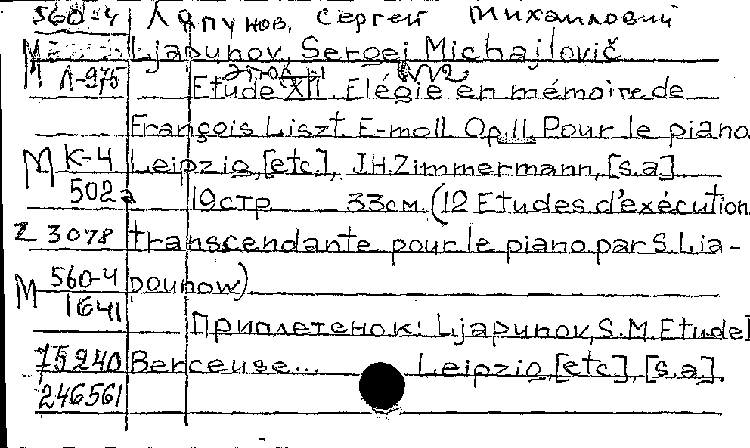 560-4 Ляпунов, Сергей Михайлович
М Ljapunov, Sergej Michajlovič
Л-975 Etude XII. Elégie en mémoire de
François Liszt E-moll Op.11. Pour le piano
М К-4 Leipzig, [etc.], J.H.Zimmermann, [s.a]
502а 19стр 33см. (12 Etudes d'exécution
2 3078 transcendante pour le piano par S.Lia-
М 560-4 pounow)
1641
Приплетенок: Ljapunov, S.M. Etude I
15240 Berceuse... Leipzig, [etc], [s.a].
246561